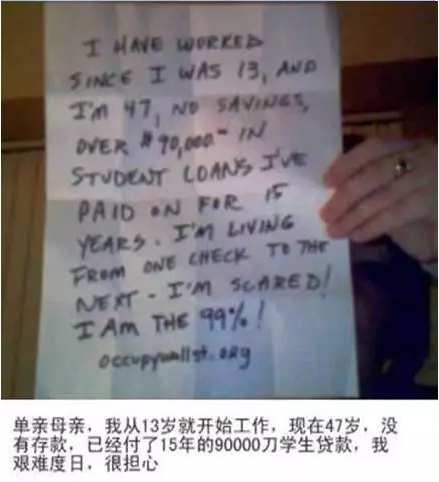 I HAVE WORKED
SINCE I WAS 13, AND
I'M 47, NO SAVINGS,
OVER $90,000 IN
STUDENT LOANS I'VE
PAID ON FOR 15
YEARS. I'M LIVING
FROM ONE CHECK TO THE
NEXT - I'M SCARED!
I AM THE 99%!
occupywallst.org
单亲母亲，我从13岁就开始工作，现在47岁，没
有存款，已经付了15年的90000刀学生贷款，我
艰难度日，很担心